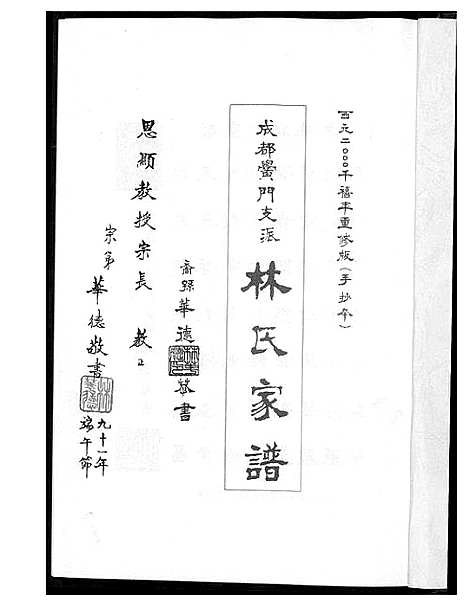 西元二〇〇〇千禧年重修版(手抄本)
成都黌門支派
林氏家譜
裔孫華德恭書
思顯教授宗長 教正
宗弟 華德敬書
九十一年
端午節